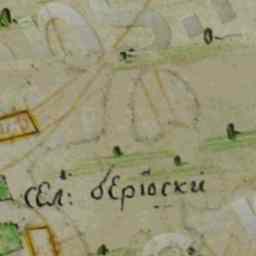 сел: беріоски